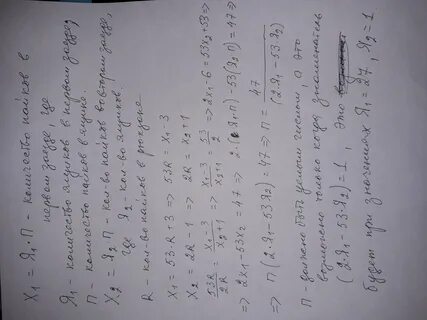 X1 = Я1·П - количество пайков в
первом заезде, где
Я1 - количество ящиков в первом заезде
П - количество пайков в ящике.
X2 = Я2 П - кол-во пайков во втором заезде,
где Я2 - кол-во ящиков
R - кол-во пайков в
X1 = 53·R + 3 => 53R = X1 - 3
X2 = 2R - 1 => 2R = X2 + 1
53R/2R = (X1 - 3)/(X2 + 1) => (X1 - 3)/(X2 + 1) = 53/2 => 2X1 - 6 = 53X2 + 53 =>
=> 2X1 - 53X2 = 47 => 2·(Я1·П) - 53(Я2·П) = 47 =>
=> П(2·Я1 - 53Я2) = 47 => П = 47/(2·Я1 - 53Я2)
П - должно быть целым числом, а это
возможно только когда знаменатель
(2·Я1 - 53·Я2) = 1, это
будет при значениях Я1 = 27, Я2 = 1